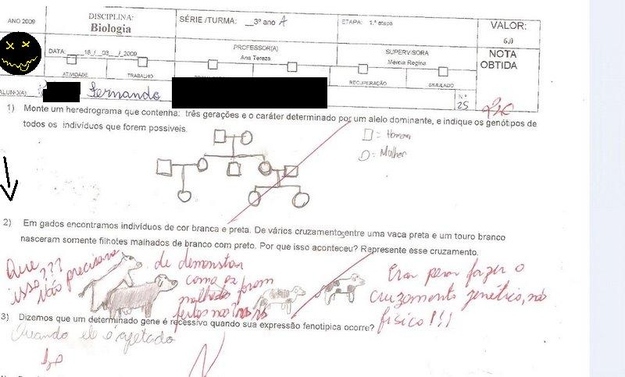 ANO 2009
DISCIPLINA:
Biologia
SÉRIE /TURMA: __3º ano A
ETAPA: 1.ª etapa
VALOR:
6.0
DATA:___18_/_03__/_2009
PROFESSOR(A)
Ana Tereza
SUPERVISORA
Marcia Regina
NOTA
OBTIDA
ATIVIDADE
TRABALHO
RECUPERAÇÃO
SIMULADO
ALUNO(A):
Fernando
N.º
25
1) Monte um heredrograma que contenha: três gerações e o caráter determinado por um alelo dominante, e indique os genótipos de
todos os indivíduos que forem possíveis.
□ = Homem
O = Mulher
2) Em gados encontramos indivíduos de cor branca e preta. De vários cruzamentos entre uma vaca preta e um touro branco
nasceram somente filhotes malhados de branco com preto. Por que isso aconteceu? Represente esse cruzamento.
Que
isso???
Não precisava
de demonstrar
como os
malhados foram
feitos não
Era para fazer o
cruzamento genético, não
físico!!!
3) Dizemos que um determinado gene é recessivo quando sua expressão fenotípica ocorre?
Quando ele é ajetado